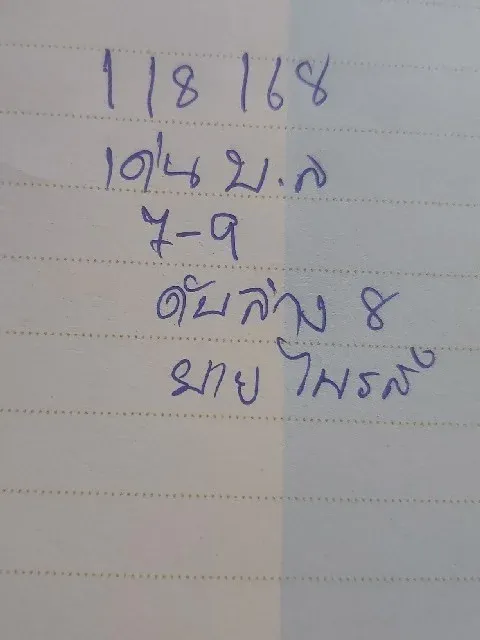 118 168
เด่น บ.ล
7-9
ดับล่าง 8
นาย ไพรส์